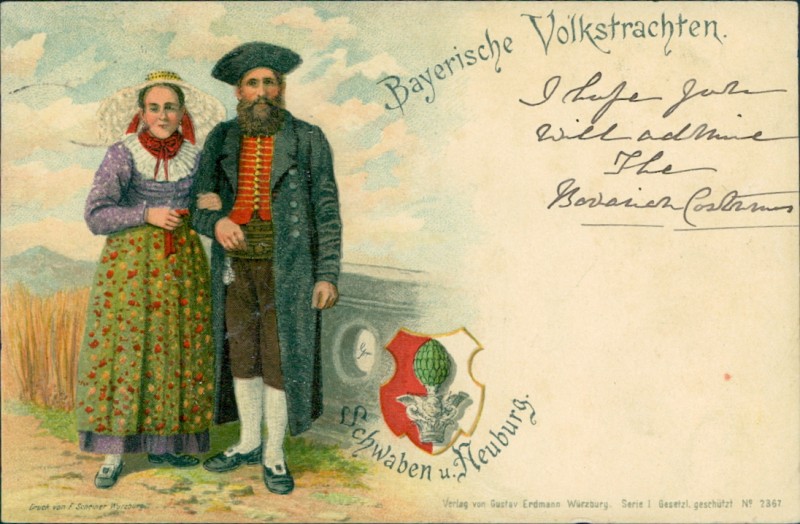 Bayerische Volkstrachten.
I hope you
will admire
The
Bavarian Costumes
Schwaben u. Neuburg.
Druck von F. Scheiner Würzburg.
Verlag von Gustav Erdmann Würzburg. Serie I Gesetzl. geschützt Nº 2367